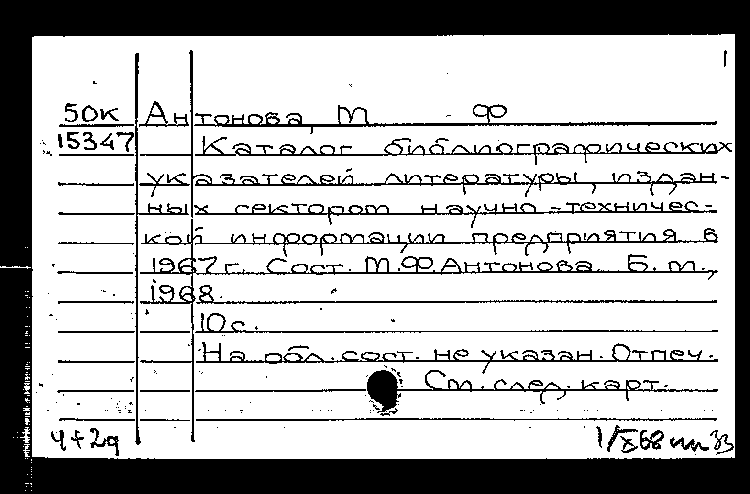 1
50к Антонова, М Ф
15347 Каталог библиографических
указателей литературы, издан-
ных сектором научно-техничес-
кой информации предприятия в
1967г. Сост. М.Ф.Антонова. Б.м.,
1968.
10с.
На обл. сост. не указан. Отпеч.
См. след. карт.
4+2д 1/X68